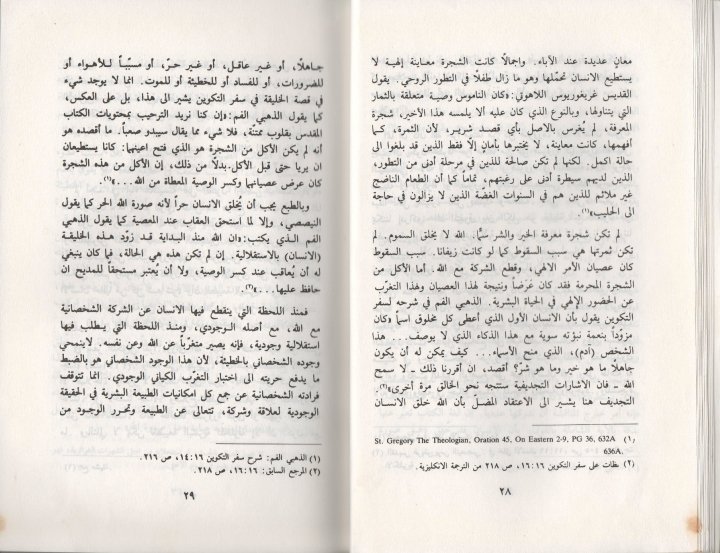 معانٍ عديدة عند الآباء. وإجمالاً كانت الشجرة معاينة إلهية لا
يستطيع الانسان تحمّلها وهو ما زال طفلًا في التطور الروحي. يقول
القديس غريغوريوس اللاهوتي: «كان الناموس وصية متعلقة بالثمار
التي يتناولها، وبالنوع الذي كان عليه ألا يلمسه هذا الأخير، شجرة
المعرفة، لم يُغرس بالاصل بأي قصد شرير، لأن الثمرة، كما
أفهمها، كانت معاينة، لا يختبرها بأمانٍ إلاّ فقط الذين قد بلغوا الى
حالة اكمل. لكنها لم تكن صالحة للذين في مرحلة أدنى من التطور،
الذين لديهم سيطرة أدنى على رغبتهم، تماماً كما أن الطعام الناضج
غير ملائم للذين هم في السنوات الغضّة الذين لا يزالون في حاجة
الى الحليب»(١).
لم تكن شجرة معرفة الخير والشر سمًّا. الله لا يخلق السموم. لم
تكن ثمرتها هي سبب السقوط كما لو كانت زيفاناً. سبب السقوط
كان عصيان الامر الالهي، وقطع الشركة مع الله. أما الأكل من
الشجرة المحرمة فقد كان عَرَضاً ونتيجة لهذا العصيان وهذا التغرّب
عن الحضور الإلهي في الحياة البشرية. الذهبي الفم في شرحه لسفر
التكوين يقول بأن الانسان الأول الذي أعطى كل مخلوق اسماً «كان
مزوّداً بنعمة نبوّته سوية مع هذا الذكاء الذي لا يوصف... هذا
الشخص (آدم)، الذي منح الأسماء... كيف يمكن له أن يكون
جاهلًا ما هو خير وما هو شرّ؟ أقصد، ان أقررنا ذلك ـ لا سمح
الله ـ فان الاشارات التجديفية ستتجه نحو الخالق مرة أخرى»(٢).
التجديف هنا يشير الى الاعتقاد المضلّ بأن الله خلق الانسان
St. Gregory The Theologian, Oration 45, On Eastern 2-9, PG 36, 632A (١)
636A.
(٢) عظات على سفر التكوين ١٦:١٦، ص ٢١٨ من الترجمة الانكليزية.
٢٨
جاهلًا، أو غير عاقل، أو غير حرّ، أو مسبّباً للأهواء أو
للضرورات، أو للفساد أو للخطيئة أو للموت. انما لا يوجد شيء
في قصة الخليقة في سفر التكوين يشير الى هذا، بل على العكس،
كما يقول الذهبي الفم: «إن كنا نريد الترحيب بمحتويات الكتاب
المقدس بقلوب ممتنة، فلا شيء مما يقال سيبدو صعباً. ما أقصده هو
أنه لم يكن الأكل من الشجرة هو الذي فتح اعينهما: كانا يستطيعان
ان يريا حتى قبل الأكل. بدلًا من ذلك، إن الأكل من هذه الشجرة
كان عرض عصيانهما وكسر الوصية المعطاة من الله...»(١).
وبالطبع يجب أن يُخلق الانسان حراً لأنه صورة الله الحر كما يقول
النيصصي، وإلا لما استحق العقاب عند المعصية كما يقول الذهبي
الفم الذي يكتب: «ان الله منذ البداية قد زوّد هذه الخليقة
(الانسان) بالاستقلالية. إن لم تكن هذه هي الحالة، فما كان ينبغي
له أن يُعاقب عند كسر الوصية، ولا أن يُعتبر مستحقاً للمديح ان
حافظ عليها...»(٢).
فمنذ اللحظة التي ينقطع فيها الانسان عن الشركة الشخصانية
مع الله، مع أصله الوجودي، ومنذ اللحظة التي يطلب فيها
استقلالية وجودية، فإنه يصير متغرّباً عن الله وعن نفسه. لا ينمحي
وجوده الشخصاني بالخطيئة، لأن هذا الوجود الشخصاني هو بالضبط
ما يدفع حريته الى اختبار التغرّب الكياني الوجودي. انما تتوقف
فرادته الشخصانية عن جمع كل امكانيات الطبيعة البشرية في الحقيقة
الوجودية لعلاقة وشركة، تتعالى عن الطبيعة وتحرر الوجود من
(١) الذهبي الفم: شرح سفر التكوين ١٤:١٦، ص ٢١٦.
(٢) المرجع السابق: ١٦:١٦، ص ٢١٨.
٢٩